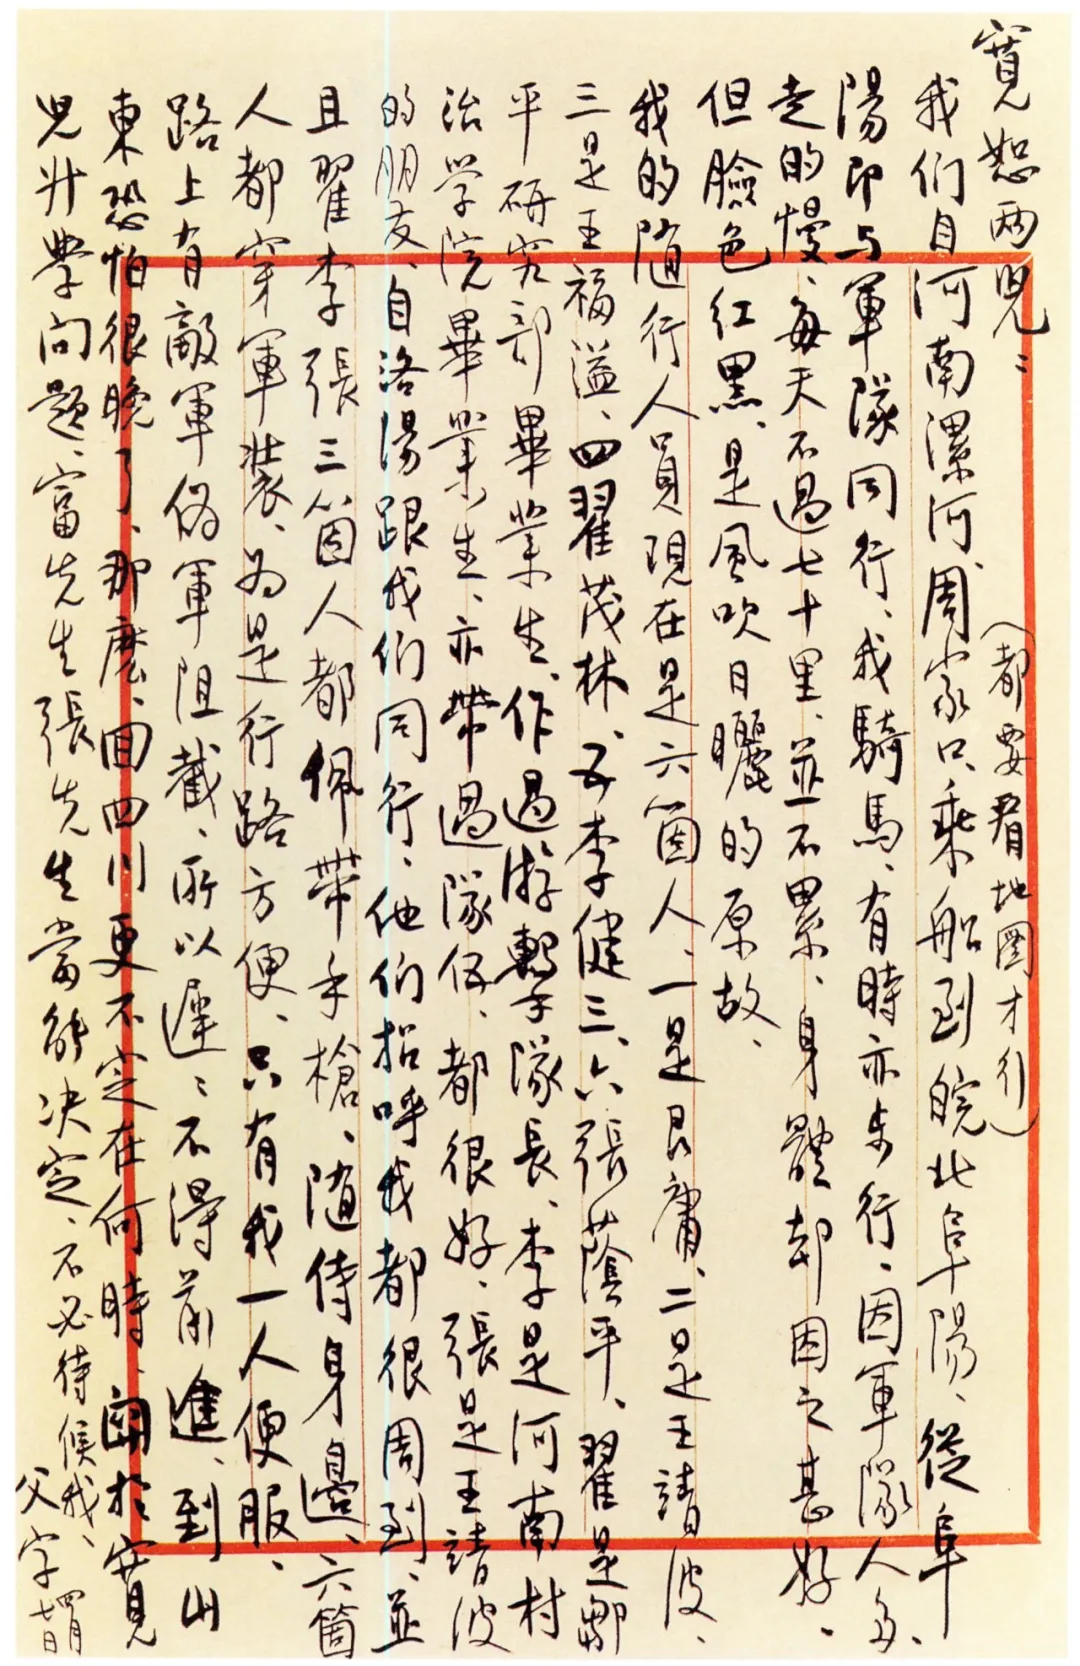 寬恕两兒：
（都要看地圖才行）
我们自河南漯河、周家口、乘船到皖北阜陽、從阜
陽即与軍隊同行、我騎馬、有時亦步行、因軍隊人多、
走的慢、每天不過七十里、並不累、身體却因之甚好、
但臉色紅黑、是風吹日曬的原故、
我的隨行人員現在是六箇人、一是艮庸、二是王靖波、
三是王福溢、四翟茂林、五李健三、六張蔭平、翟是鄒
平研究部畢業生、作過游擊隊長、李是河南村
治学院畢業生、亦帶過隊伍、都很好、張是王靖波
的朋友、自洛陽跟我们同行、他们招呼我都很周到、並
且翟李張三箇人都佩帶手槍、随侍身邊、六箇
人都穿軍裝、为是行路方便、只有我一人便服、
路上有敵軍偽軍阻截、所以遲遲不得前進、到山
東恐怕很晚了、那麽、回四川更不定在何時、関於寬
兒升學问题、富先生張先生當能决定、不必待候我、
父字
四月七日